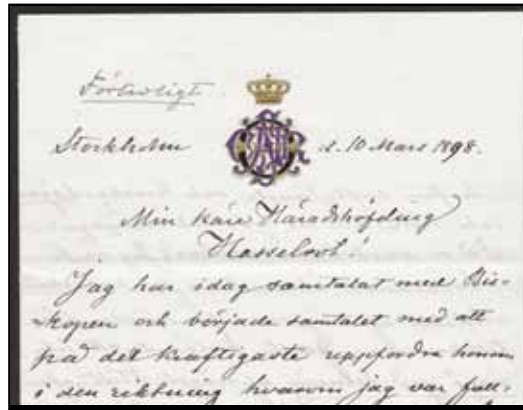 Förtroligt
Stockholm d. 10 Mars 1898.
Min käre Häradshöfding
Hasselrot!
Jag har idag samtalat med Bis-
kopen och började samtalet med att
på det kraftigaste uppfordra honom
i den riktning hvarom jag var full-